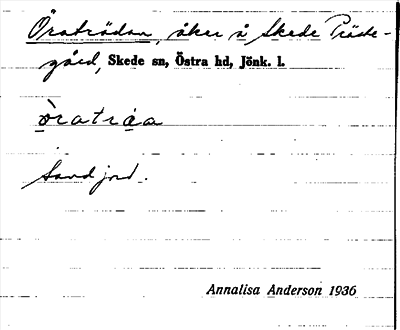 Öraträdan, åker å Skede Präste-
gård, Skede sn, Östra hd, Jönk. l.
òratráa
Sandjord.
Annalisa Anderson 1936